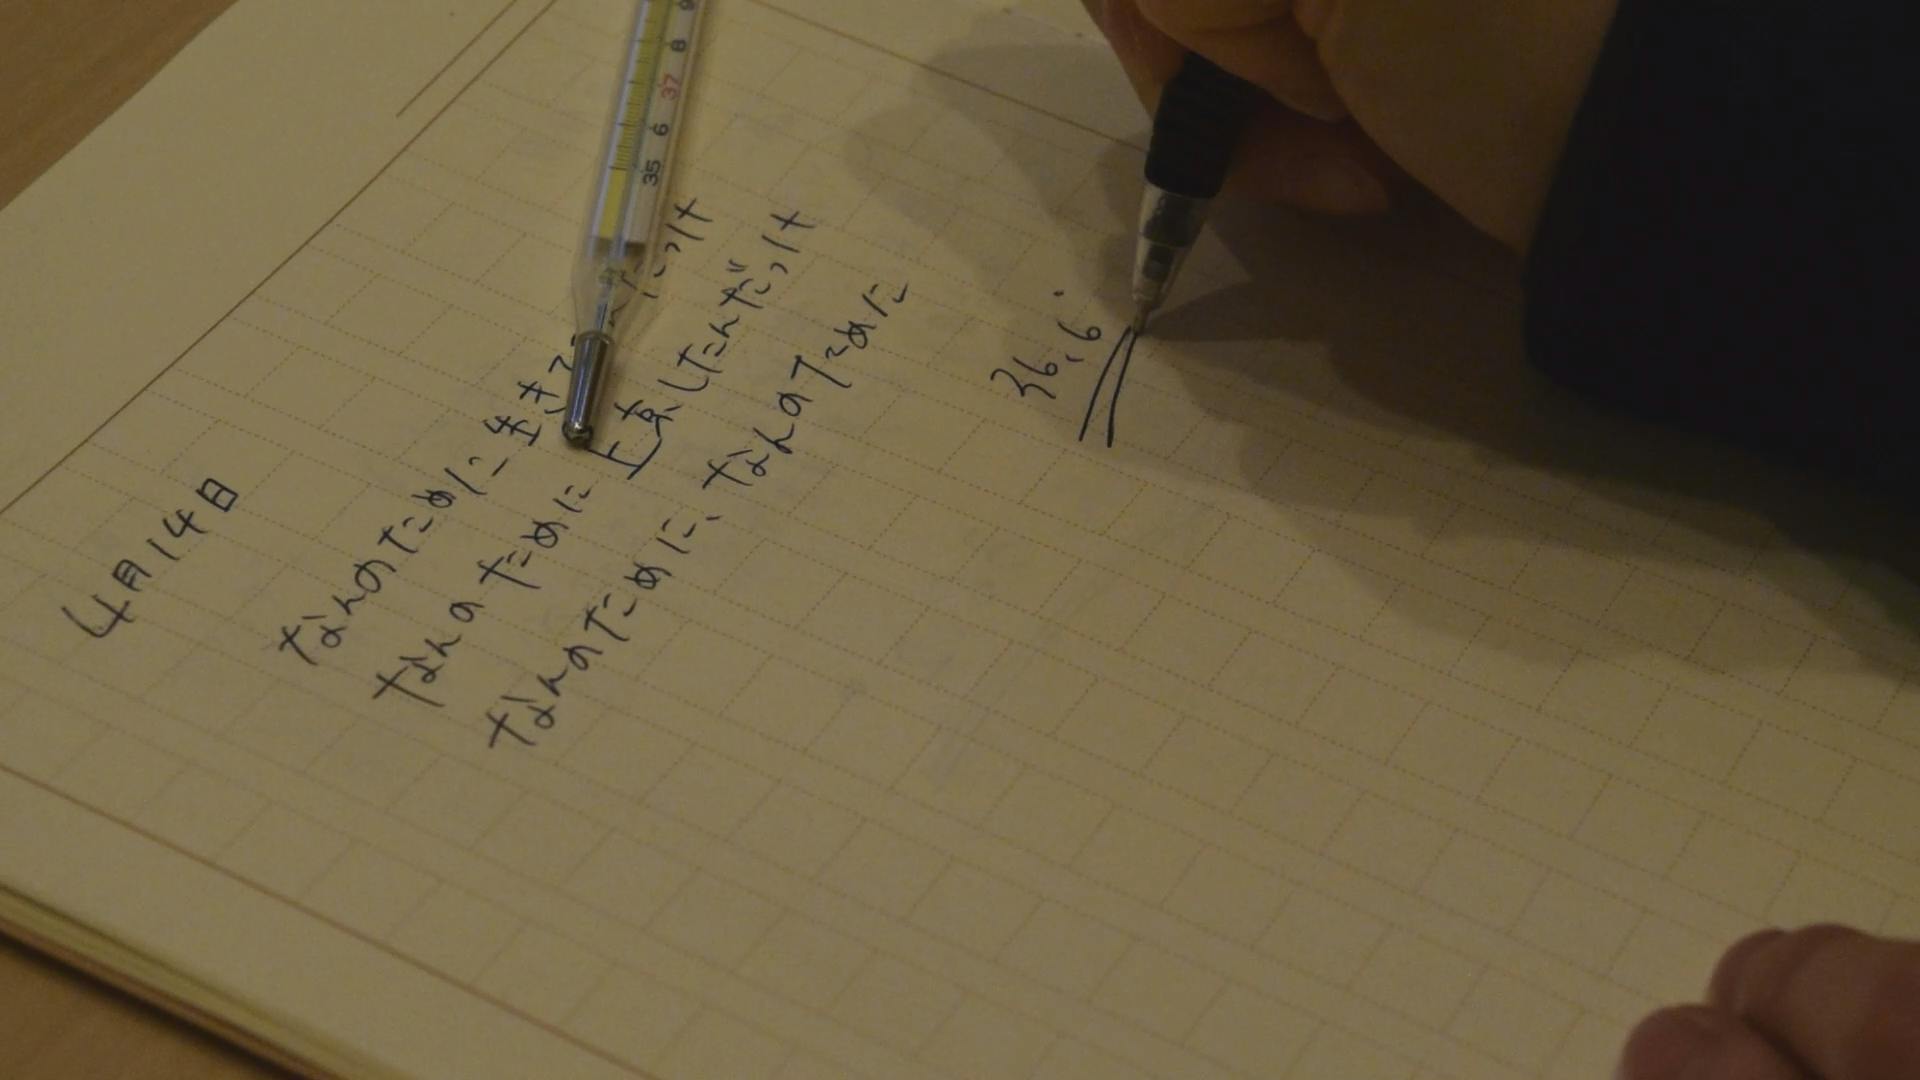 4月14日
なんのために生き
だっけ
なんのために上京したんだっけ
なんのために、なんのために
36.6°
35 6 37 8 9